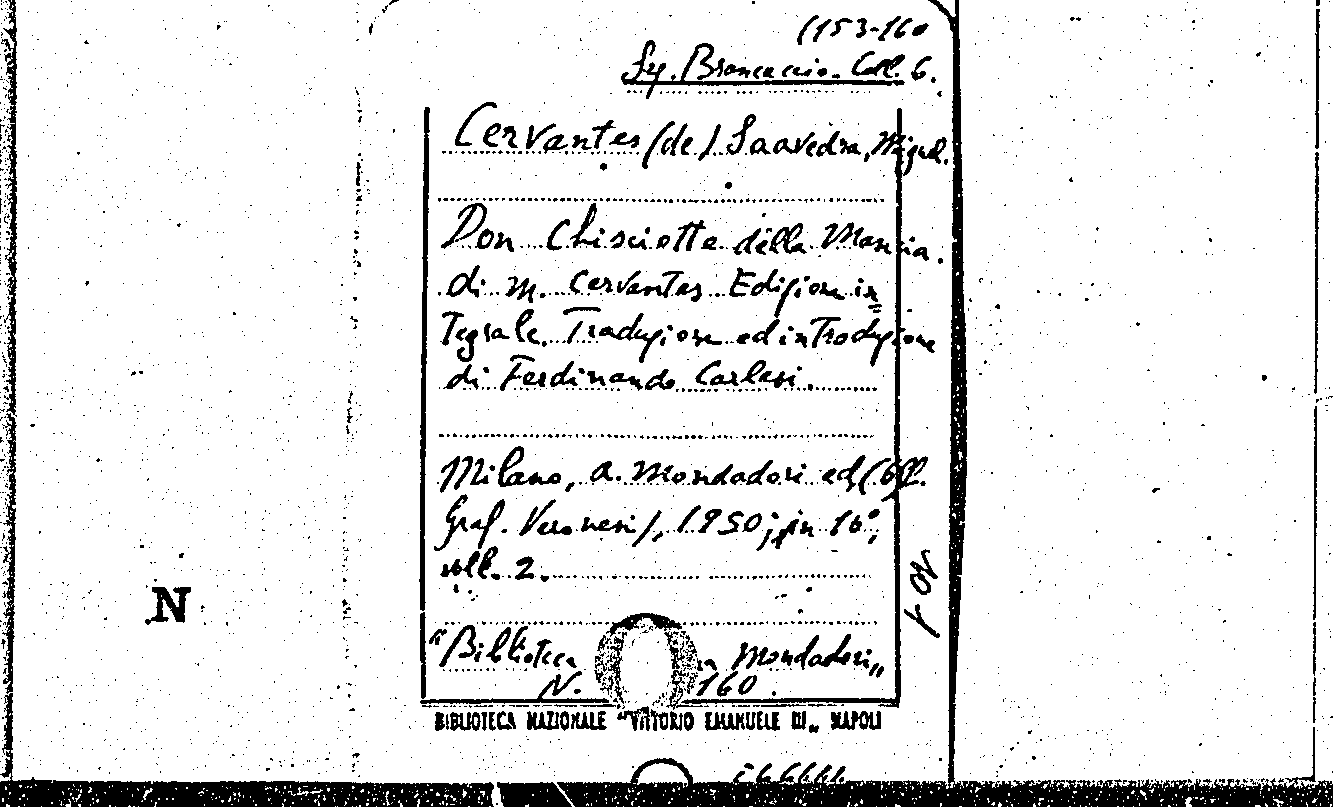 (153-160
Sez. Brancaccio. Coll. 6.
Cervantes (de) Saavedra, Miguel.
Don Chisciotte della Mancia.
di M. Cervantes Edizione in
tegrale. Traduzione ed introduzione
di Ferdinando Carlesi.
Milano, A. Mondadori ed, (Off.
Graf. Veronesi), 1950; in 16°,
voll. 2.
"Biblioteca Mondadori„
N. 160.
BIBLIOTECA NAZIONALE "VITTORIO EMANUELE III„ NAPOLI
N